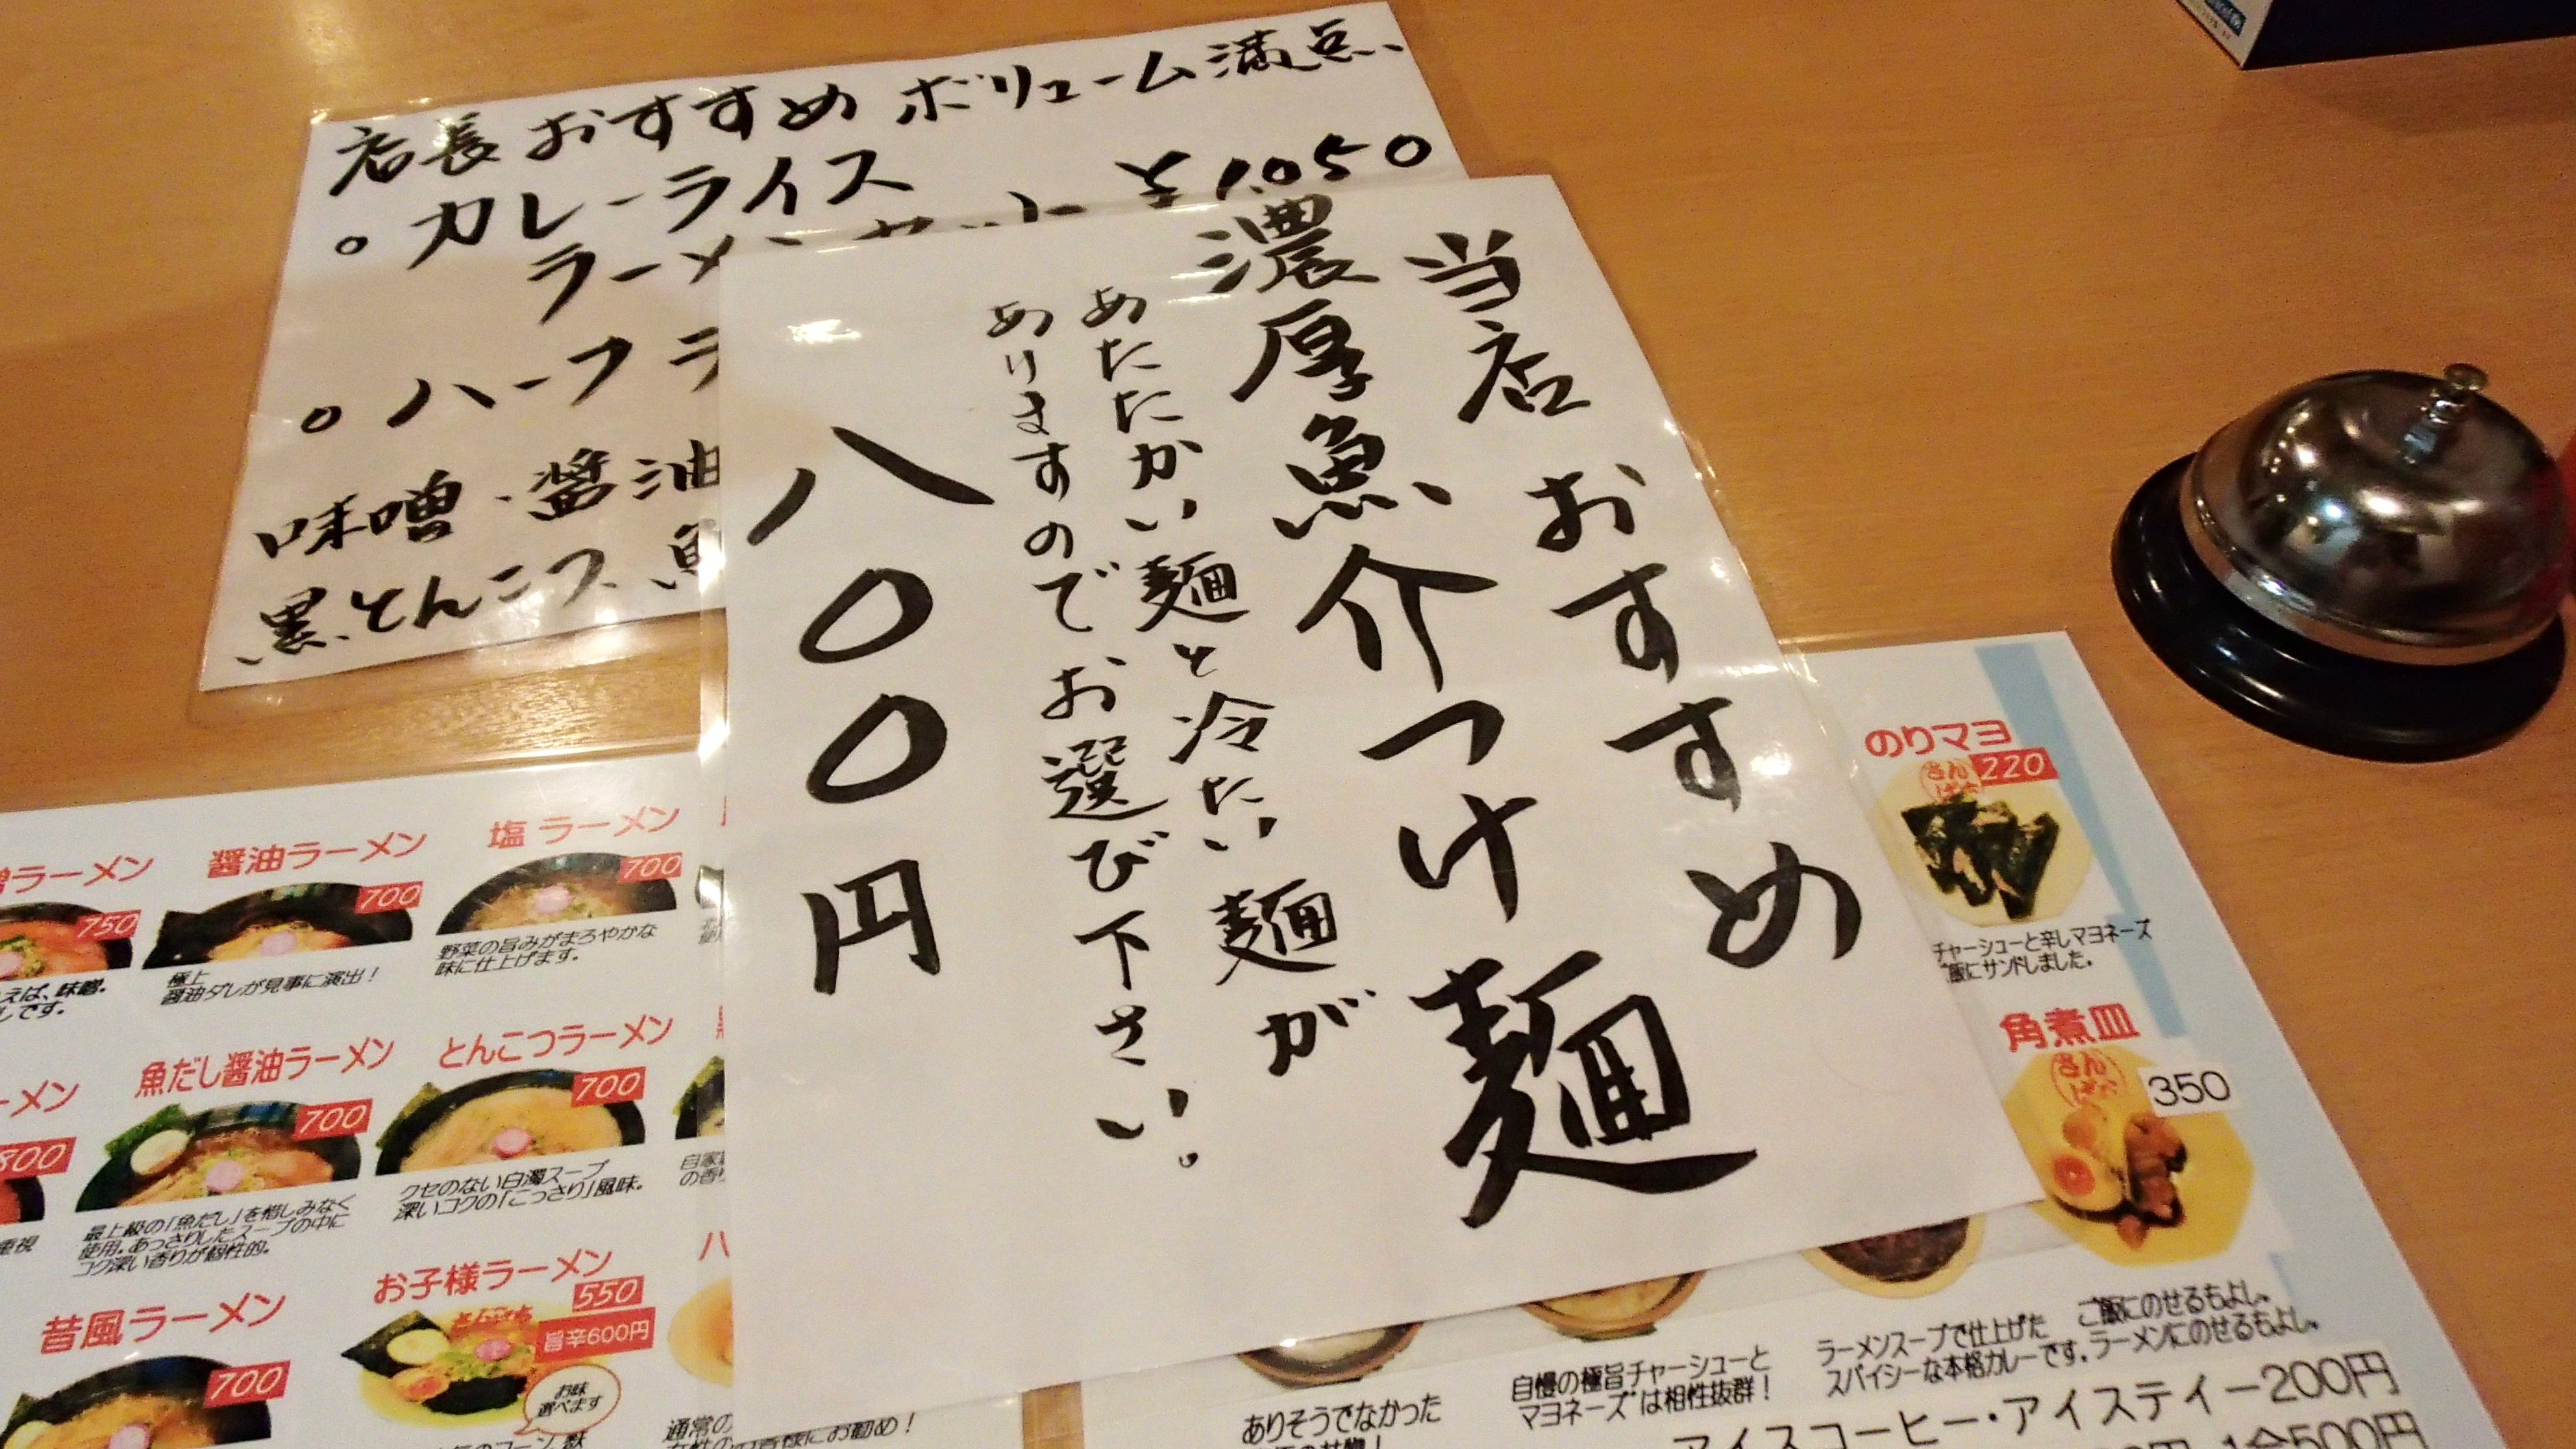 店長おすすめ ボリューム満点
。カレーライス
ラーメンセット ¥1,050
。ハーフラ
味噌・醤油
黒とんこつ、魚
当店おすすめ
濃厚魚介つけ麺
あたたかい麺と冷たい麺が
ありますのでお選び下さい。
八〇〇円
ラーメン
750
えば、味噌。
しです。
醤油ラーメン
700
極上
醤油ダレが見事に演出!
塩ラーメン
700
野菜の旨みがまろやかな
味に仕上げます。
ーメン
800
重視
魚だし醤油ラーメン
700
最上級の「魚だし」を惜しみなく
使用。あっさりしたスープの中に
コク深い香りが個性的。
とんこつラーメン
700
クセのない白濁スープ
深いコクの「こっさり」風味。
自家
の香
昔風ラーメン
700
お子様ラーメン
550
旨辛600円
お味
選べます
通常の
お勧め!
のりマヨ
220
チャーシューと辛しマヨネーズ
ご飯にサンドしました。
角煮皿
350
ご飯にのせるもよし。
ラーメンにのせるもよし。
ラーメンスープで仕上げた
スパイシーな本格カレーです。
自慢の極旨チャーシューと
マヨネーズは相性抜群!
ありそうでなかった
アイスコーヒー・アイスティー200円
500円